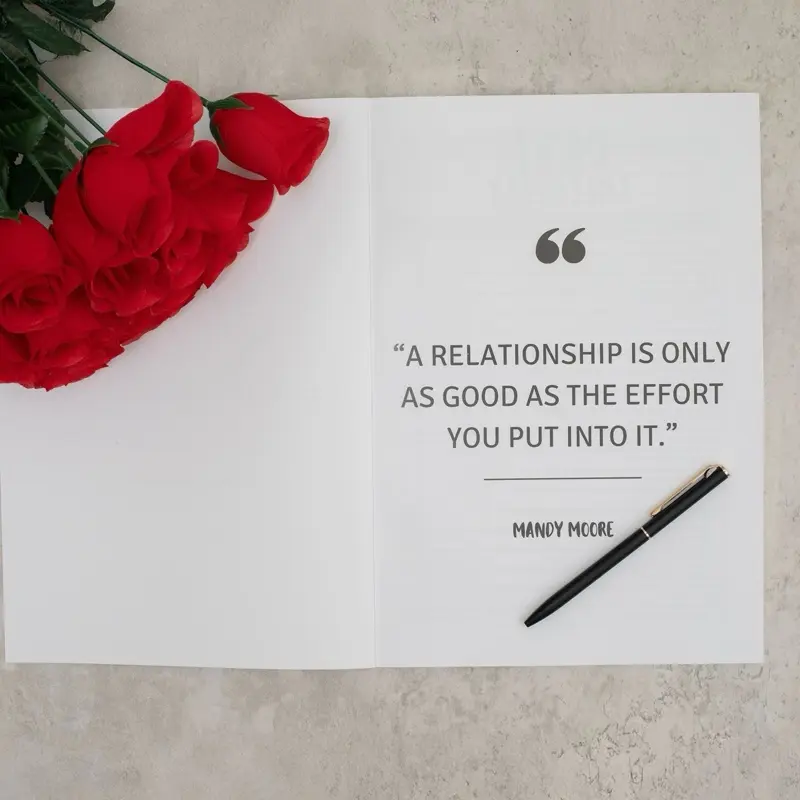 “
“A RELATIONSHIP IS ONLY
AS GOOD AS THE EFFORT
YOU PUT INTO IT.”
MANDY MOORE